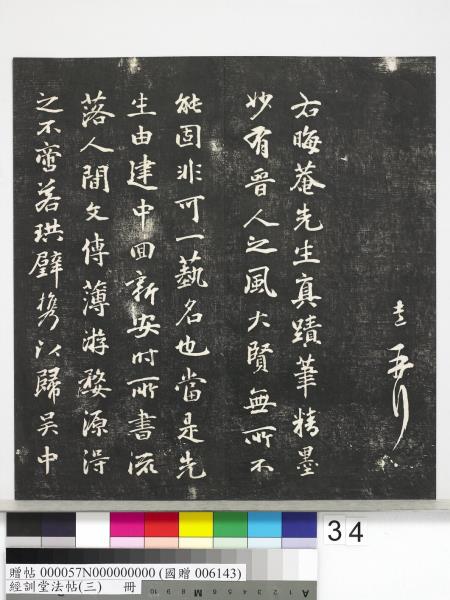 右晦菴先生真蹟筆精墨
妙有晉人之風大賢無所不
能固非可一藝名也當是先
生由建中回新安时所書流
落人間文傳薄游婺源淂
之不啻若珙璧携以歸吴中
34
贈帖 000057N000000000 (國贈 006143)
經訓堂法帖(三) 冊